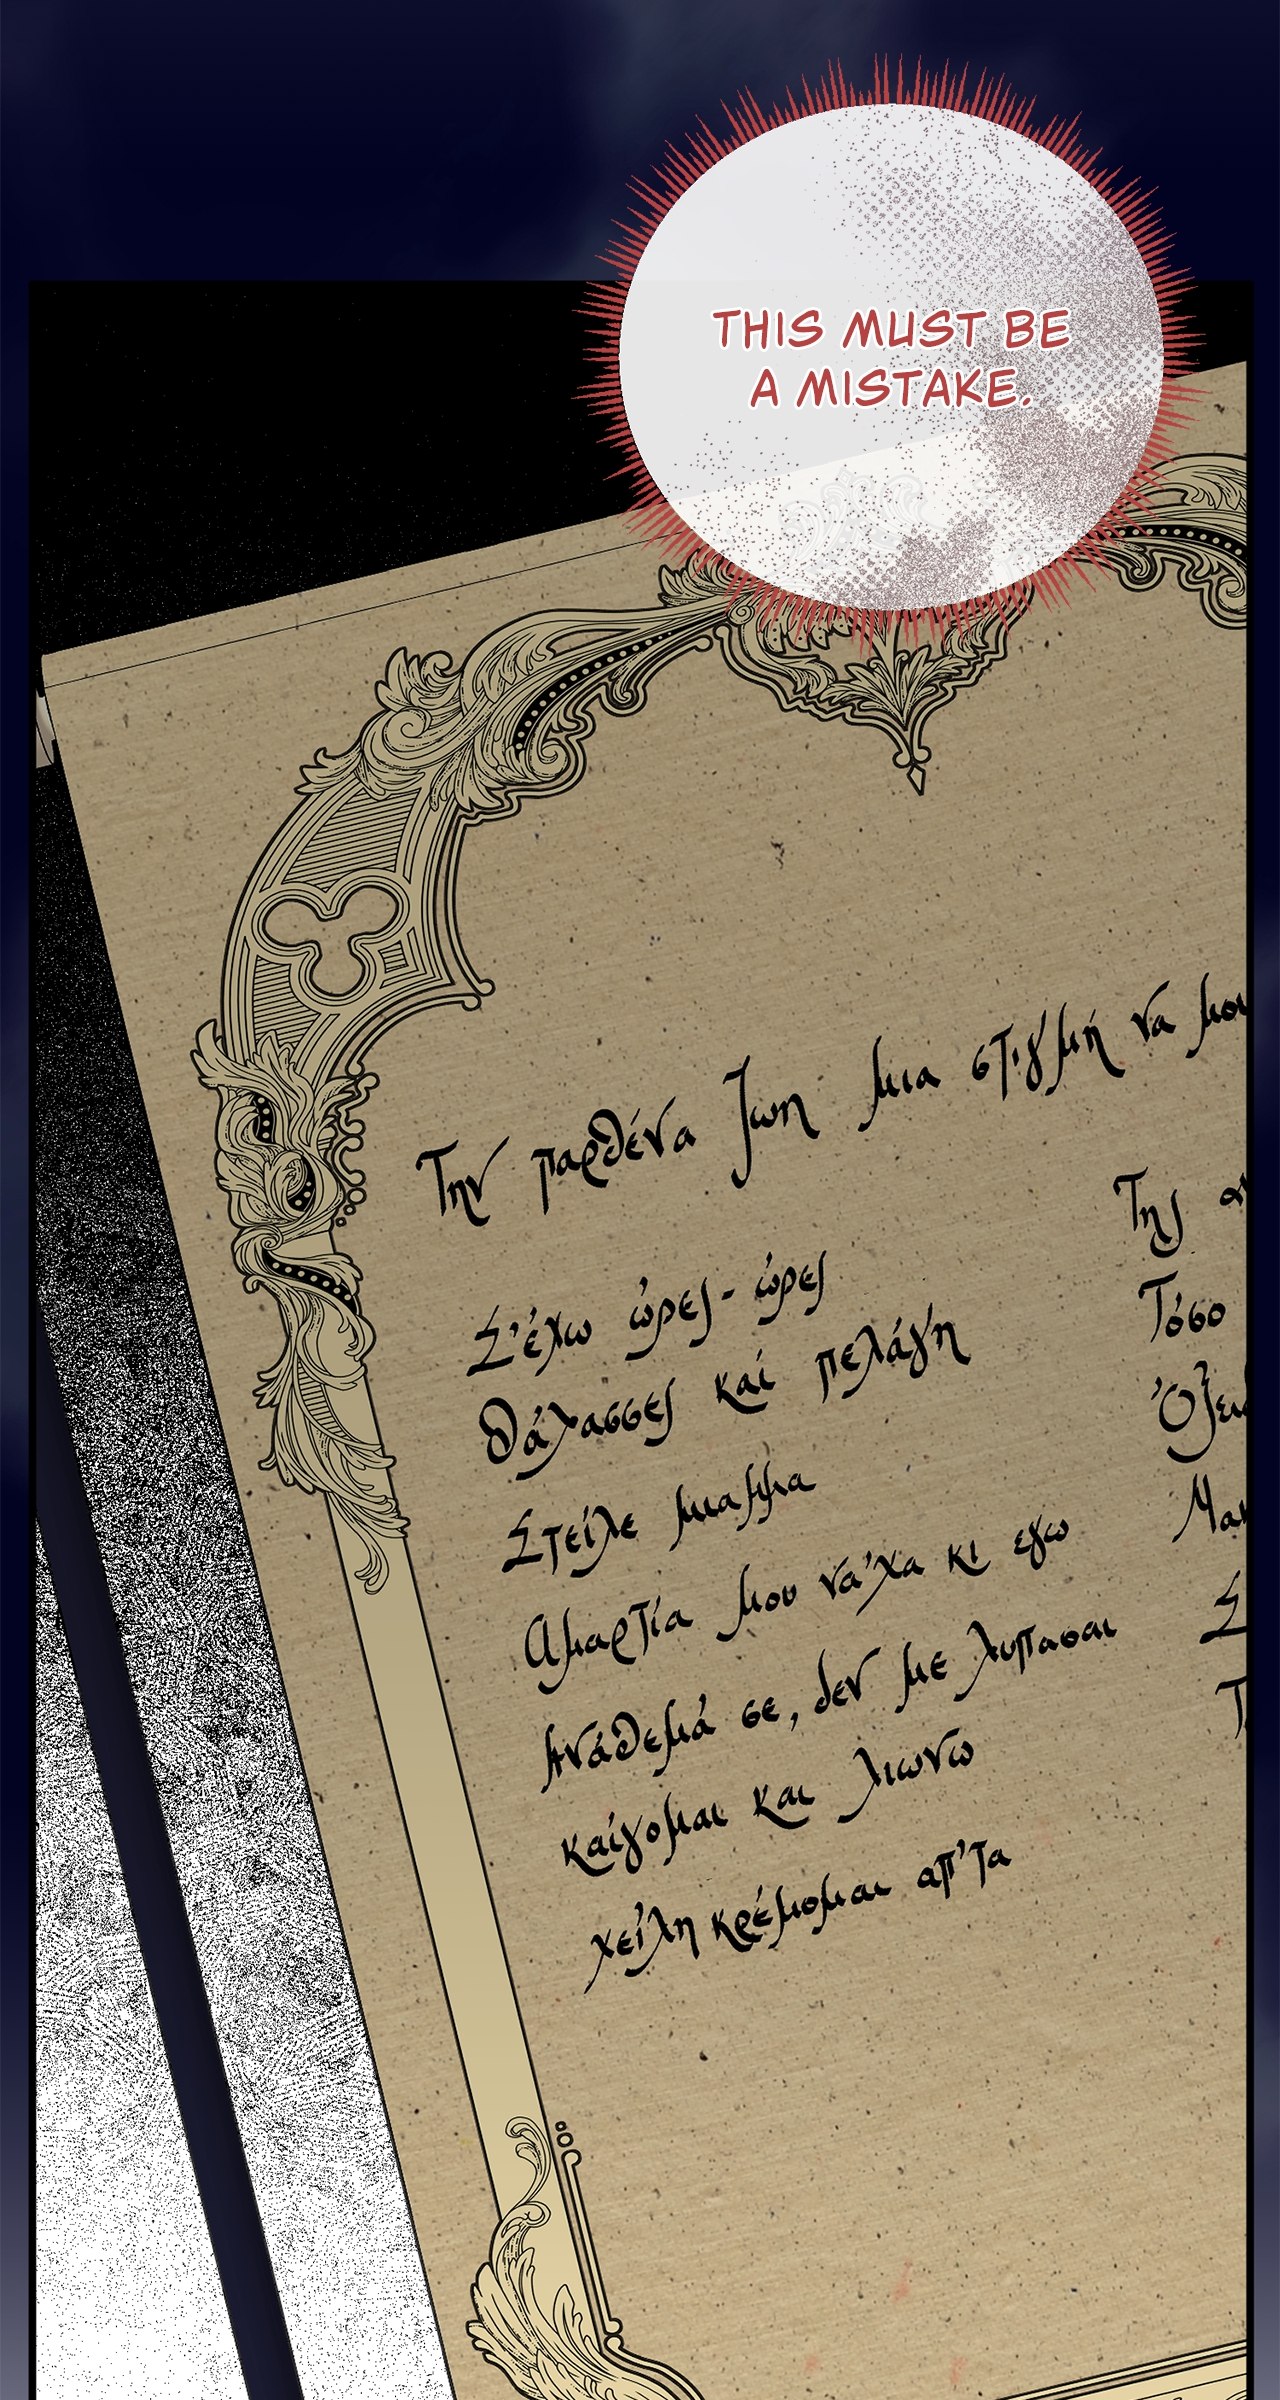 THIS MUST BE
A MISTAKE.
Την παρθένα ζωη μια στιγμή να μου
Σ'έχω ώρες-ώρες
θάλασσες καί πελάγη
Στείλε μια
Αμαρτία μου νά'χα κι εγω
Ανάθεμά σε, δεν με λυπασαι
καίγομαι και λιωνω
χείλη κρέμομαι απ'τα
Της
Τόσο